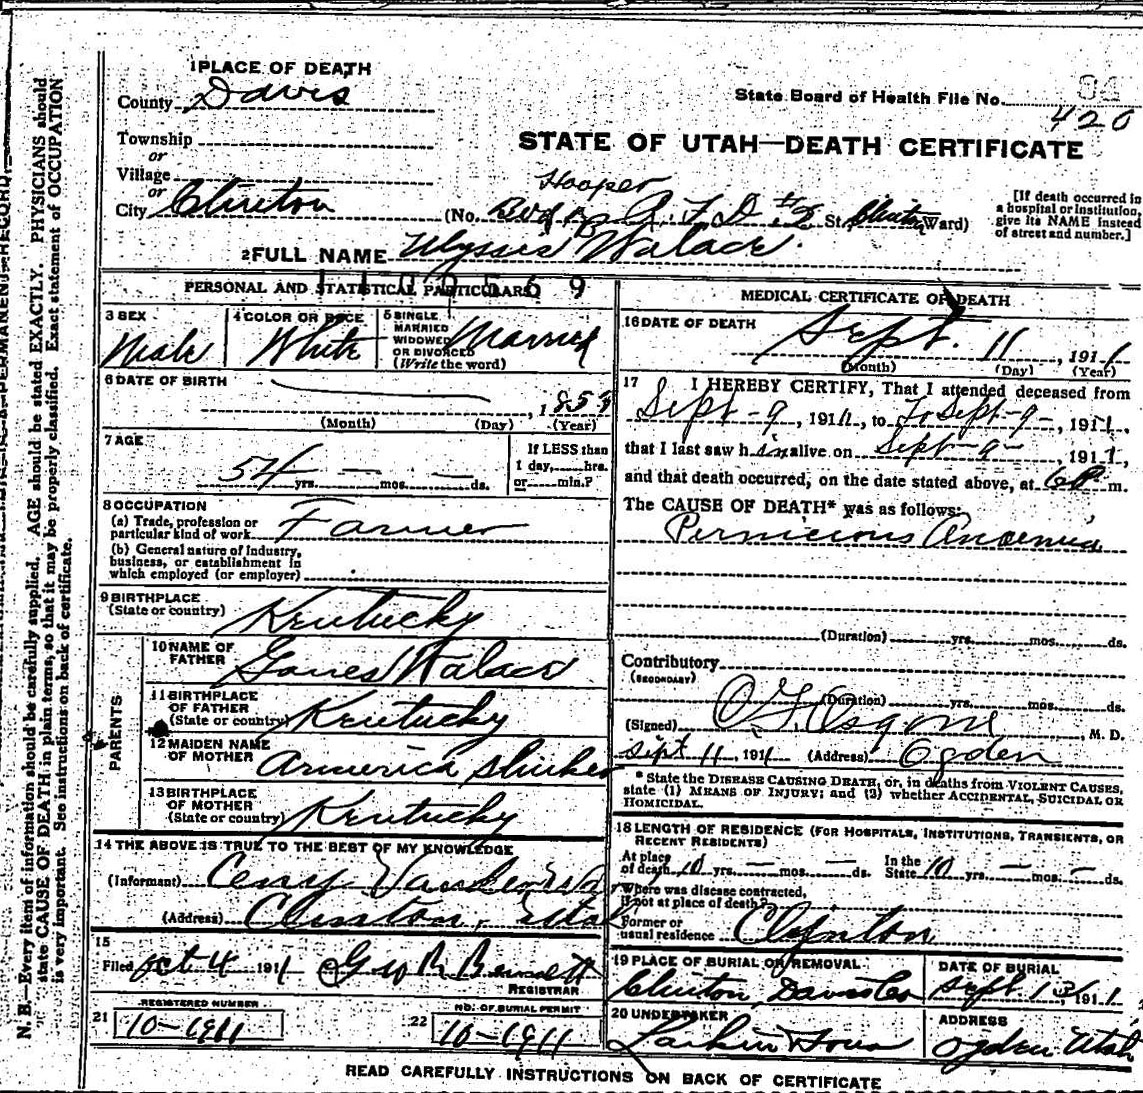 1 PLACE OF DEATH
County Davis
State Board of Health File No.
420
Township
or
Village
or
City Clinton
STATE OF UTAH—DEATH CERTIFICATE
Hooper
(No. R. F. D. #2 St. Clinton Ward)
[If death occurred in
a hospital or institution,
give its NAME instead
of street and number.]
2 FULL NAME Ulysses Walace.
PERSONAL AND STATISTICAL PARTICULARS
3 SEX
Male
4 COLOR OR RACE
White
5 SINGLE
MARRIED
WIDOWED
OR DIVORCED
(Write the word)
Married
6 DATE OF BIRTH
, 185
(Month) (Day) (Year)
7 AGE
54 yrs. — mos. — ds.
If LESS than
1 day, hrs.
or min.?
8 OCCUPATION
(a) Trade, profession or
particular kind of work Farmer
(b) General nature of industry,
business, or establishment in
which employed (or employer)
9 BIRTHPLACE
(State or country)
Kentucky
PARENTS
10 NAME OF
FATHER
James Walace
11 BIRTHPLACE
OF FATHER
(State or country) Kentucky
12 MAIDEN NAME
OF MOTHER Armerica
13 BIRTHPLACE
OF MOTHER
(State or country) Kentucky
14 THE ABOVE IS TRUE TO THE BEST OF MY KNOWLEDGE
(Informant)
(Address) Clinton, Utah
15
Filed Oct 4 1911
REGISTRAR
21 REGISTERED NUMBER
10-1911
22 NO. OF BURIAL PERMIT
10-1911
MEDICAL CERTIFICATE OF DEATH
16 DATE OF DEATH
Sept. 11, 1911
(Month) (Day) (Year)
17 I HEREBY CERTIFY, That I attended deceased from
Sept - 9, 1911, to To Sept - 9 - 1911,
that I last saw h im alive on Sept - 9 - 1911,
and that death occurred, on the date stated above, at 6 P m.
The CAUSE OF DEATH* was as follows:
Pernicious Anaemia
(Duration) yrs. mos. ds.
Contributory
(SECONDARY)
(Duration) yrs. mos. ds.
(Signed) , M. D.
Sept 11, 1911 (Address) Ogden
* State the DISEASE CAUSING DEATH, or, in deaths from VIOLENT CAUSES,
state (1) MEANS OF INJURY; and (2) whether ACCIDENTAL, SUICIDAL OR
HOMICIDAL.
18 LENGTH OF RESIDENCE (FOR HOSPITALS, INSTITUTIONS, TRANSIENTS, OR
RECENT RESIDENTS)
At place
of death 10 yrs. — mos. — ds.
In the
State 10 yrs. — mos. — ds.
Where was disease contracted,
if not at place of death?
Former or
usual residence Clynton
19 PLACE OF BURIAL OR REMOVAL
Clinton Davis Co
DATE OF BURIAL
Sept. 13, 1911
20 UNDERTAKER
Larkin & Sons
ADDRESS
Ogden Utah
READ CAREFULLY INSTRUCTIONS ON BACK OF CERTIFICATE
N. B. Every item of information should be carefully supplied. AGE should be stated EXACTLY. PHYSICIANS should
state CAUSE OF DEATH in plain terms, so that it may be properly classified. Exact statement of OCCUPATION
is very important. See instructions on back of certificate.